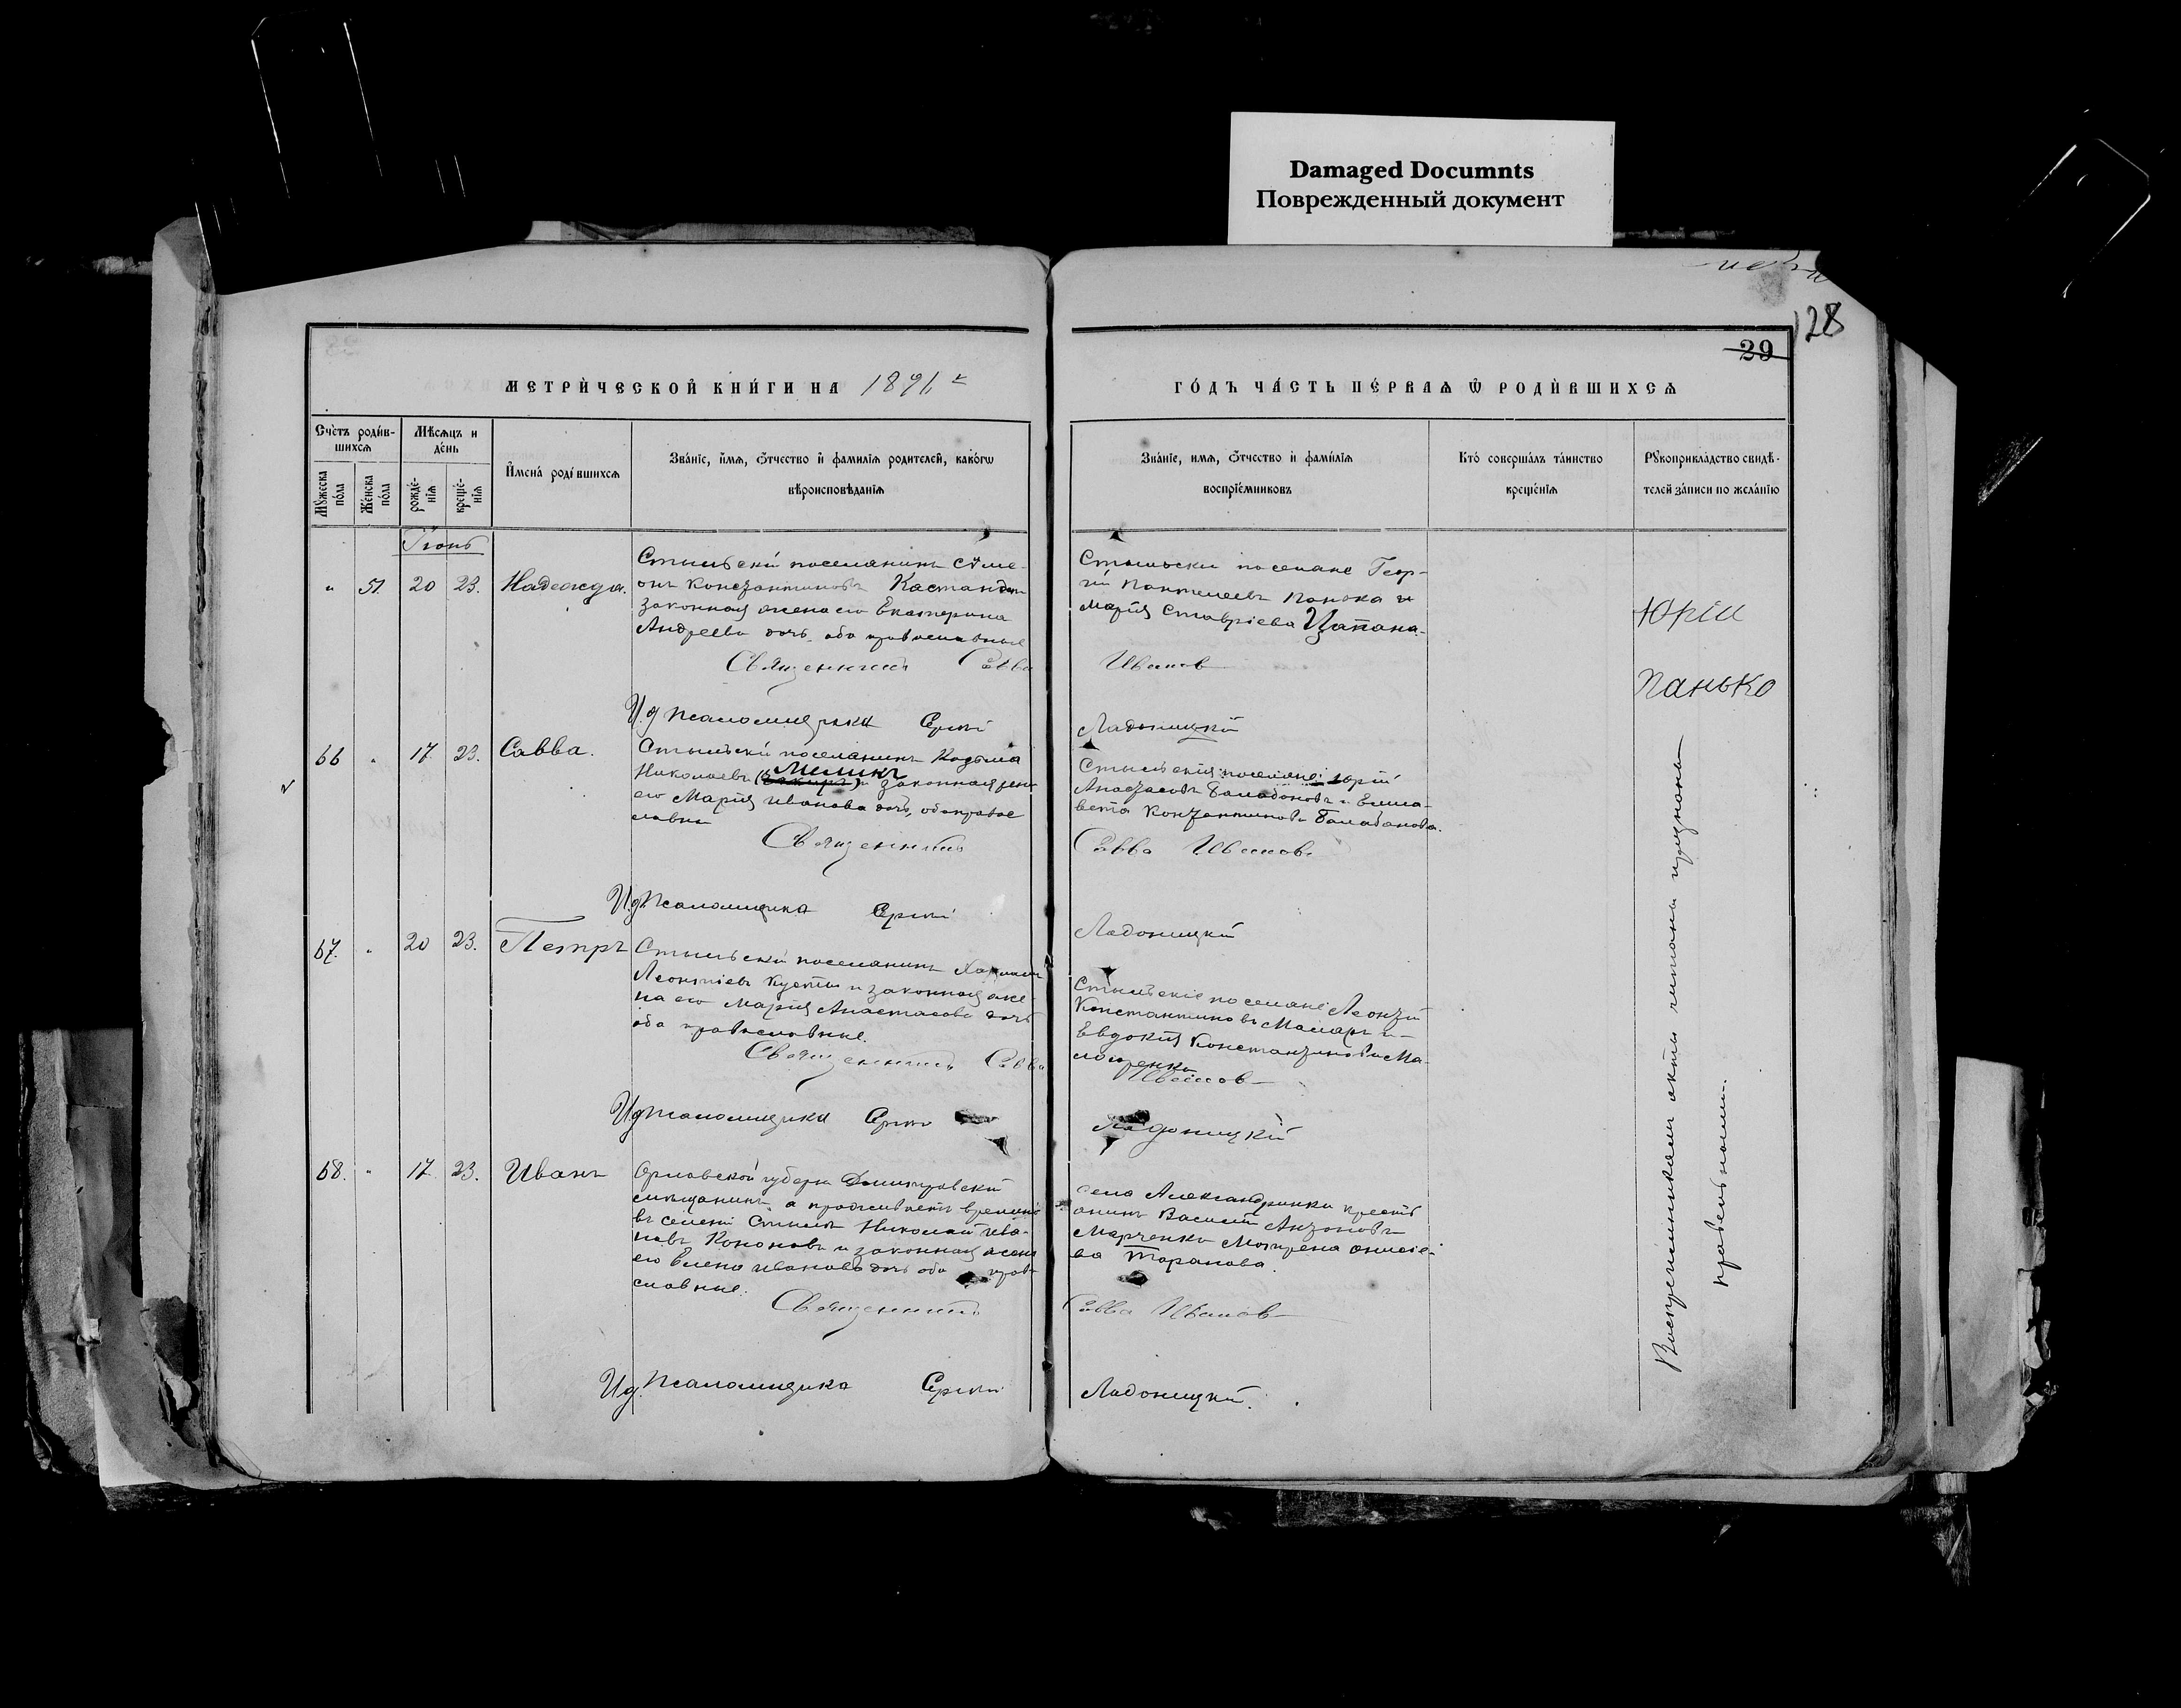 Damaged Documnts
Поврежденный документ
128
29
МЕТРИ́ЧЕСКОЙ КНИ́ГИ НА 1891
ГО́ДЪ ЧА́СТЬ ПЕ́РВАѦ Ѡ҆ РОДИ́ВШИХСѦ
Сче́тъ роди́в-
шихсѧ
Мѣсѧцъ и
де́нь
Мꙋжеска
по́ла
Же́нска
по́ла
рожде́-
нїѧ
креще́-
нїѧ
И҆мена̀ роди́вшихсѧ
Зва́нїе, и҆́мѧ, ѻ҆́тчество и҆ фами́лїѧ роди́телей, како́гѡ
вѣроисповѣ́данїѧ
Зва́нїе, имѧ, ѻ҆́тчество и҆ фами́лїѧ
воспрїе́мниковъ
Кто̀ соверша́лъ та́инство
креще́нїѧ
Рꙋкоприкла́дство свидѣ́-
телей за́писи по жела́нїю
Іюнь
" 51. 20 23. Надежда.
Стыльскій поселянинъ Симе-
онъ Константиновъ
законная жена его Екатерина
Андреева дочь, оба православные
Стыльскіи поселяне Геор-
гій Пантелеевъ Панька и
Марія Ставріева Цапана.
Юрій
Панько
Священникъ Савва Иванов
И.д. псаломщика Сергій Ладоницкій
66 " 17 23. Савва.
Стыльскій поселянинъ Козьма
Николаевъ Меликъ и законная жена
его Марія Иванова дочь, оба православ
славны
Стыльскія поселяне: Юрій
Анастасовъ Балабановъ и Елиса-
вета Константинова Балабанова.
Священникъ Савва Иванов
И.д. псаломщика Сергій Ладоницкій
67. " 20 23. Петръ
Стыльскій поселянинъ
Леонтіевъ и законная же-
на его Марія Анастасова дочь
оба православные.
Стыльскіе поселяне Леонтій
Константиновъ и
Евдокія Константинова Ма-
Священникъ Савва Иванов
И.д. псаломщика Сергій Ладоницкій
68. " 17. 23. Иванъ
Орловской губерн Дмитровскій
мѣщанинъ, а проживаетъ времено
въ селеніи Стыля Николай Ива-
новъ Кононовъ и законная жена
его Елена Иванова дочь оба прав-
славные.
села Александринки крестя
анинъ Василій Антоновъ
Марченко Матрена
ва Таранова.
Священникъ Савва Иванов
И.д. псаломщика Сергій Ладоницкій.
Воспреемникамъ акты читаны и признаны
правельными.